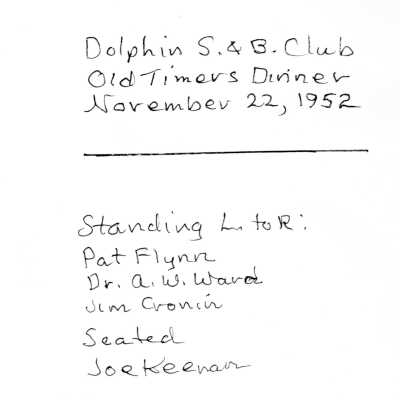 Dolphin S. & B. Club
Old Timers Dinner
November 22, 1952
Standing L. to R:
Pat Flynn
Dr. A. W. Ward
Jim Cronin
Seated
Joe Keenan